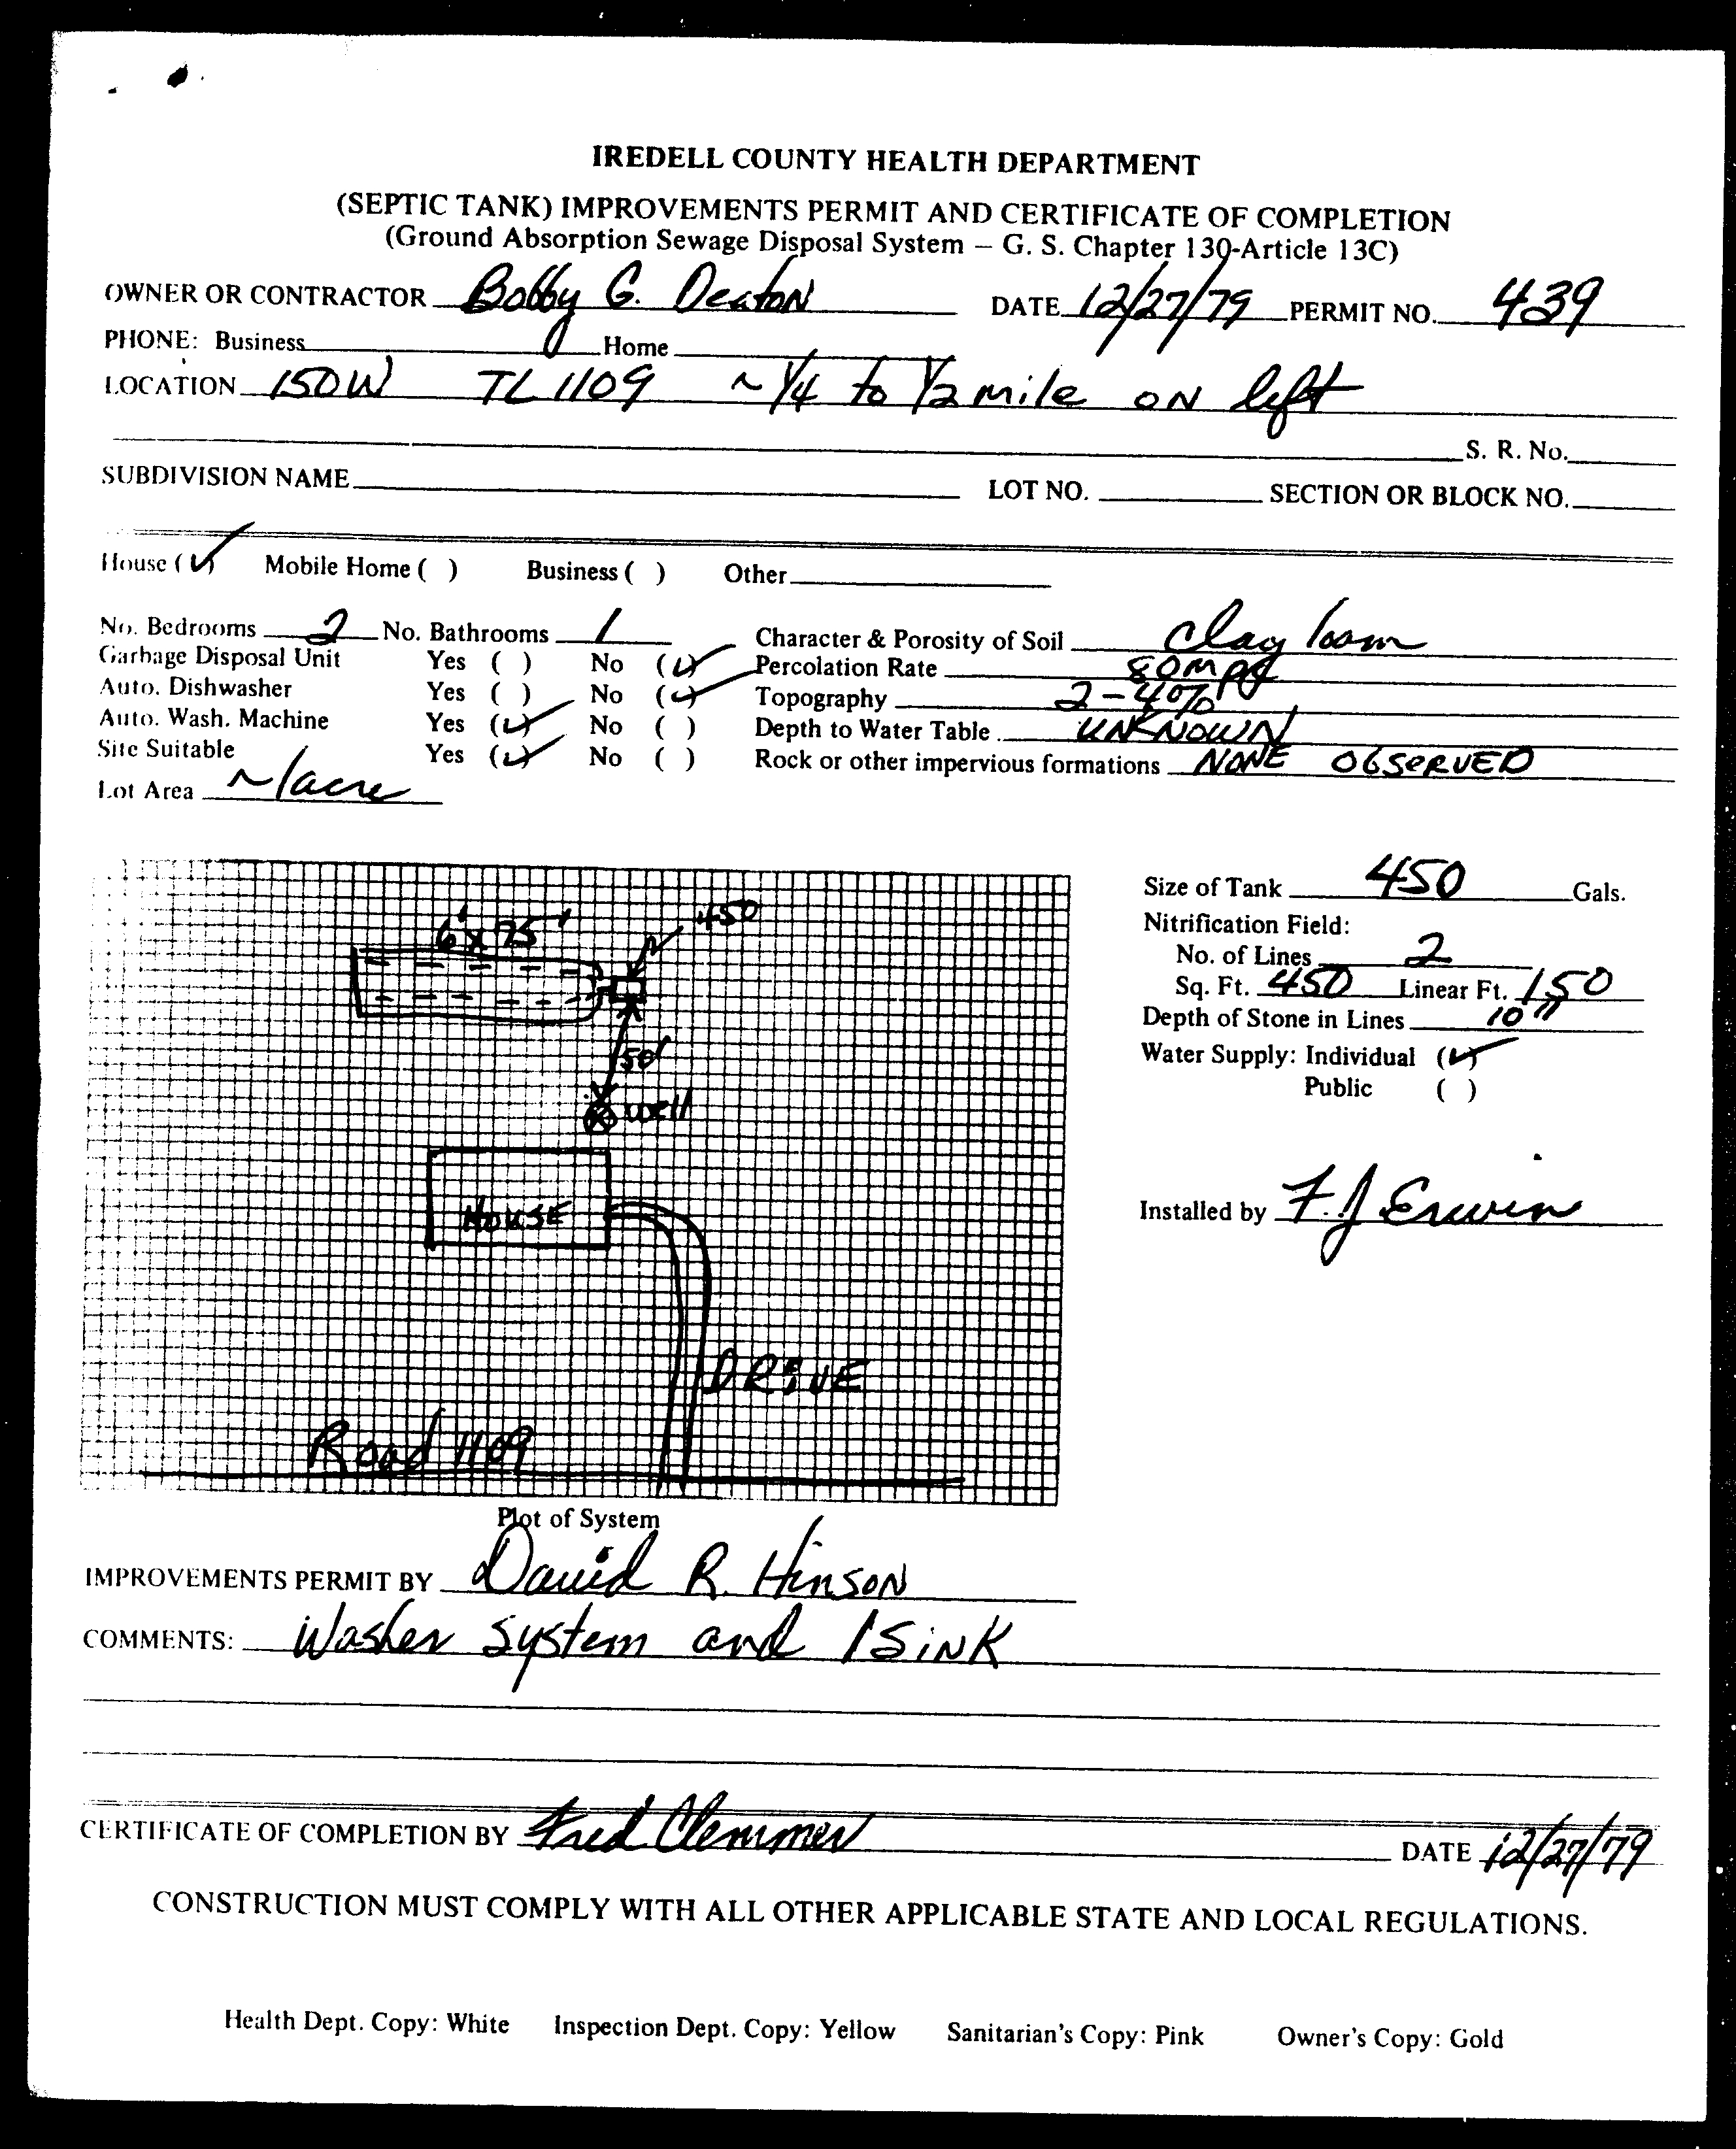 IREDELL COUNTY HEALTH DEPARTMENT
(SEPTIC TANK) IMPROVEMENTS PERMIT AND CERTIFICATE OF COMPLETION
(Ground Absorption Sewage Disposal System – G. S. Chapter 130-Article 13C)
OWNER OR CONTRACTOR Bobby G. Deaton DATE 12/27/79 PERMIT NO. 439
PHONE: Business Home
LOCATION 150W TL 1109 ~ 1/4 to 1/2 mile ON left
S. R. No.
SUBDIVISION NAME LOT NO. SECTION OR BLOCK NO.
House (✓) Mobile Home ( ) Business ( ) Other
No. Bedrooms 2 No. Bathrooms 1 Character & Porosity of Soil Clay loam
Garbage Disposal Unit Yes ( ) No (✓) Percolation Rate 80 mpi
Auto. Dishwasher Yes ( ) No (✓) Topography 2-40%
Auto. Wash. Machine Yes (✓) No ( ) Depth to Water Table UNKNOWN
Site Suitable Yes (✓) No ( ) Rock or other impervious formations NONE OBSERVED
Lot Area ~1acre
Size of Tank 450 Gals.
Nitrification Field:
No. of Lines 2
Sq. Ft. 450 Linear Ft. 150
Depth of Stone in Lines 10"
Water Supply: Individual (✓)
Public ( )
Installed by F. J Erwin
6' x 75'
450
50'
well
HOUSE
DRIVE
Road 1109
Plot of System
IMPROVEMENTS PERMIT BY David R. Hinson
COMMENTS: Washer System and 1 SINK
CERTIFICATE OF COMPLETION BY Fred Clemmer DATE 12/27/79
CONSTRUCTION MUST COMPLY WITH ALL OTHER APPLICABLE STATE AND LOCAL REGULATIONS.
Health Dept. Copy: White Inspection Dept. Copy: Yellow Sanitarian's Copy: Pink Owner's Copy: Gold